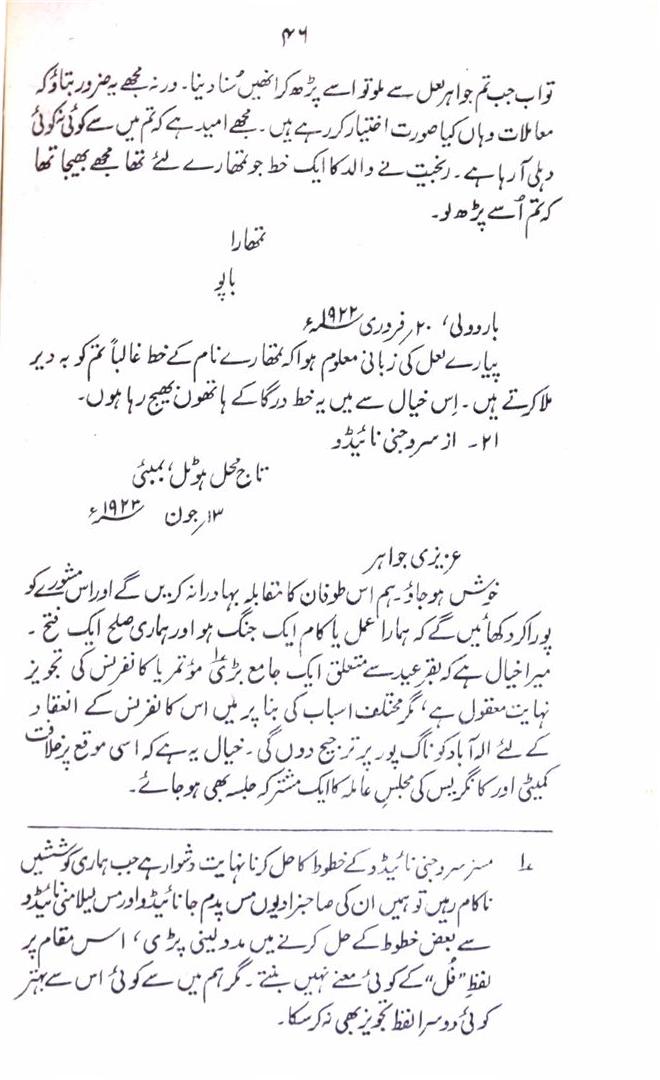 ۴۶
تو اب جب تم جواہر لعل سے ملو تو اسے پڑھ کر انھیں سُنا دینا۔ ورنہ مجھے یہ ضرور بتاؤ کہ
معاملات وہاں کیا صورت اختیار کر رہے ہیں۔ مجھے امید ہے کہ تم میں سے کوئی نہ کوئی
دہلی آ رہا ہے۔ رنجیت نے والد کا ایک خط جو تمھارے لئے تھا مجھے بھیجا تھا
کہ تم اُسے پڑھ لو۔
تمھارا
باپو
باردولی، ۲۰؍فروری ۱۹۲۲ء
پیارے لعل کی زبانی معلوم ہوا کہ تمھارے نام کے خط غالباً تم کو بہ دیر
ملا کرتے ہیں۔ اِس خیال سے میں یہ خط درگا کے ہاتھوں بھیج رہا ہوں۔
۲۱۔ از سروجنی نائیڈو
تاج محل ہوٹل، بمبئی
۱۳؍جون ۱۹۲۳ء
عزیزی جواہر
خوش ہو جاؤ۔ ہم اس طوفان کا مقابلہ بہادرانہ کریں گے اور اس مشورے کو
پورا کر دکھائیں گے کہ ہمارا عمل یا کام ایک جنگ ہو اور ہماری صلح ایک فتح۔
میرا خیال ہے کہ بقرعید سے متعلق ایک جامع بڑی مؤتمر یا کانفرنس کی تجویز
نہایت معقول ہے، مگر مختلف اسباب کی بنا پر میں اس کانفرنس کے انعقاد
کے لئے الہ آباد کو ناگ پور پر ترجیح دوں گی۔ خیال یہ ہے کہ اسی موقع پر خلافت
کمیٹی اور کانگریس کی مجلسِ عاملہ کا ایک مشترکہ جلسہ بھی ہو جائے۔
؎۱ مسز سروجنی نائیڈو کے خطوط کا حل کرنا نہایت دشوار ہے جب ہماری کوششیں
ناکام رہیں تو ہمیں ان کی صاحبزادیوں مس پدم جا نائیڈو اور مس لیلا منی نائیڈو
سے بعض خطوط کے حل کرنے میں مدد لینی پڑی، اس مقام پر
لفظِ "فُل" کے کوئی معنے نہیں بنتے۔ مگر ہم میں سے کوئی اس سے بہتر
کوئی دوسرا لفظ تجویز بھی نہ کر سکا۔